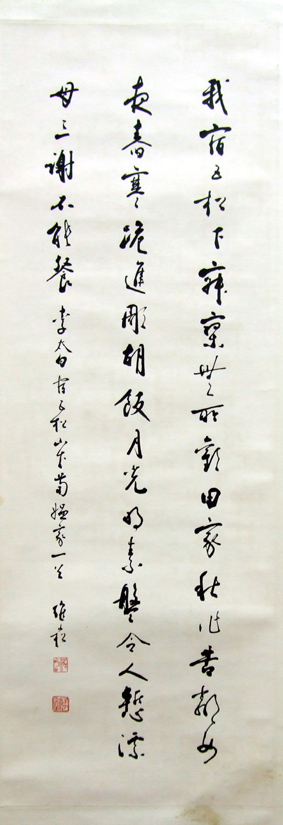 我宿五松下寂寥無所歡田家秋作苦鄰女
夜舂寒跪進彫胡飯月光明素盤令人慙漂
母三謝不能餐 李太白宿五松山下荀媪家一首 維崧